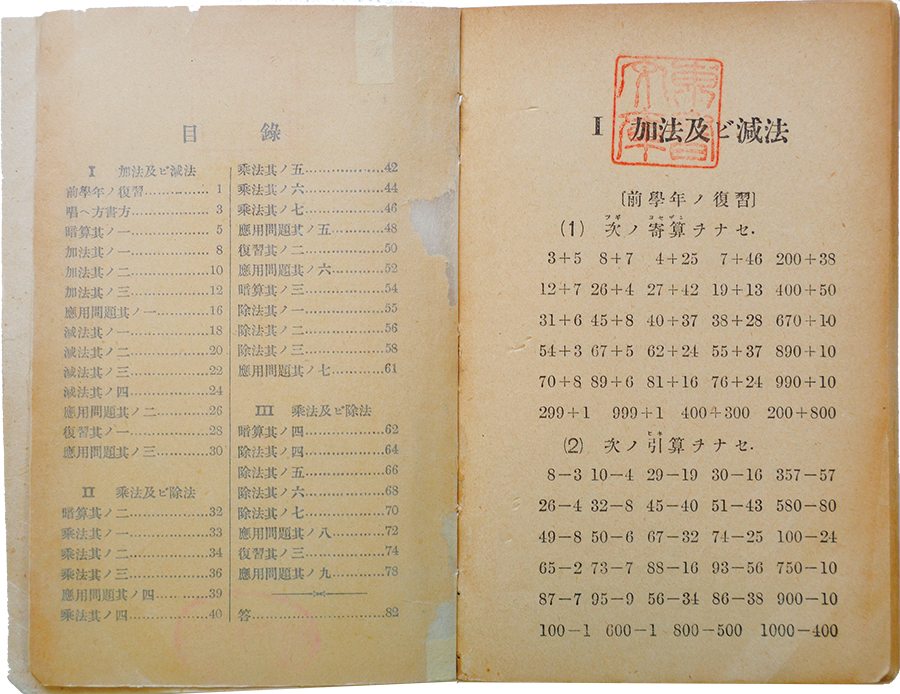 目錄
I 加法及ビ減法
前學年ノ復習……………1
唱ヘ方書方………………3
暗算其ノ一………………5
加法其ノ一………………8
加法其ノ二………………10
加法其ノ三………………12
應用問題其ノ一…………16
減法其ノ一………………18
減法其ノ二………………20
減法其ノ三………………22
減法其ノ四………………24
應用問題其ノ二…………26
復習其ノ一………………28
應用問題其ノ三…………30
II 乘法及ビ除法
暗算其ノ二………………32
乘法其ノ一………………33
乘法其ノ二………………34
乘法其ノ三………………36
應用問題其ノ四…………39
乘法其ノ四………………40
乘法其ノ五………………42
乘法其ノ六………………44
乘法其ノ七………………46
應用問題其ノ五…………48
復習其ノ二………………50
應用問題其ノ六…………52
暗算其ノ三………………54
除法其ノ一………………55
除法其ノ二………………56
除法其ノ三………………58
應用問題其ノ七…………61
III 乘法及ビ除法
暗算其ノ四………………62
除法其ノ四………………64
除法其ノ五………………66
除法其ノ六………………68
除法其ノ七………………70
應用問題其ノ八…………72
復習其ノ三………………74
應用問題其ノ九…………78
答…………………………82
I 加法及ビ減法
〔前學年ノ復習〕
(1) 次ノ寄算ヲナセ.
3+5 8+7 4+25 7+46 200+38
12+7 26+4 27+42 19+13 400+50
31+6 45+8 40+37 38+28 670+10
54+3 67+5 62+24 55+37 890+10
70+8 89+6 81+16 76+24 990+10
299+1 999+1 400+300 200+800
(2) 次ノ引算ヲナセ.
8-3 10-4 29-19 30-16 357-57
26-4 32-8 45-40 51-43 580-80
49-8 50-6 67-32 74-25 100-24
65-2 73-7 88-16 93-56 750-10
87-7 95-9 56-34 86-38 900-10
100-1 600-1 800-500 1000-400